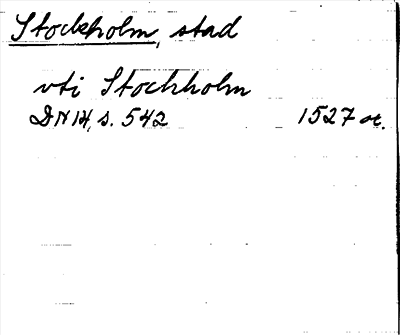 Stockholm, stad
vti Stockholm
DN 14, s. 542 1527 or.